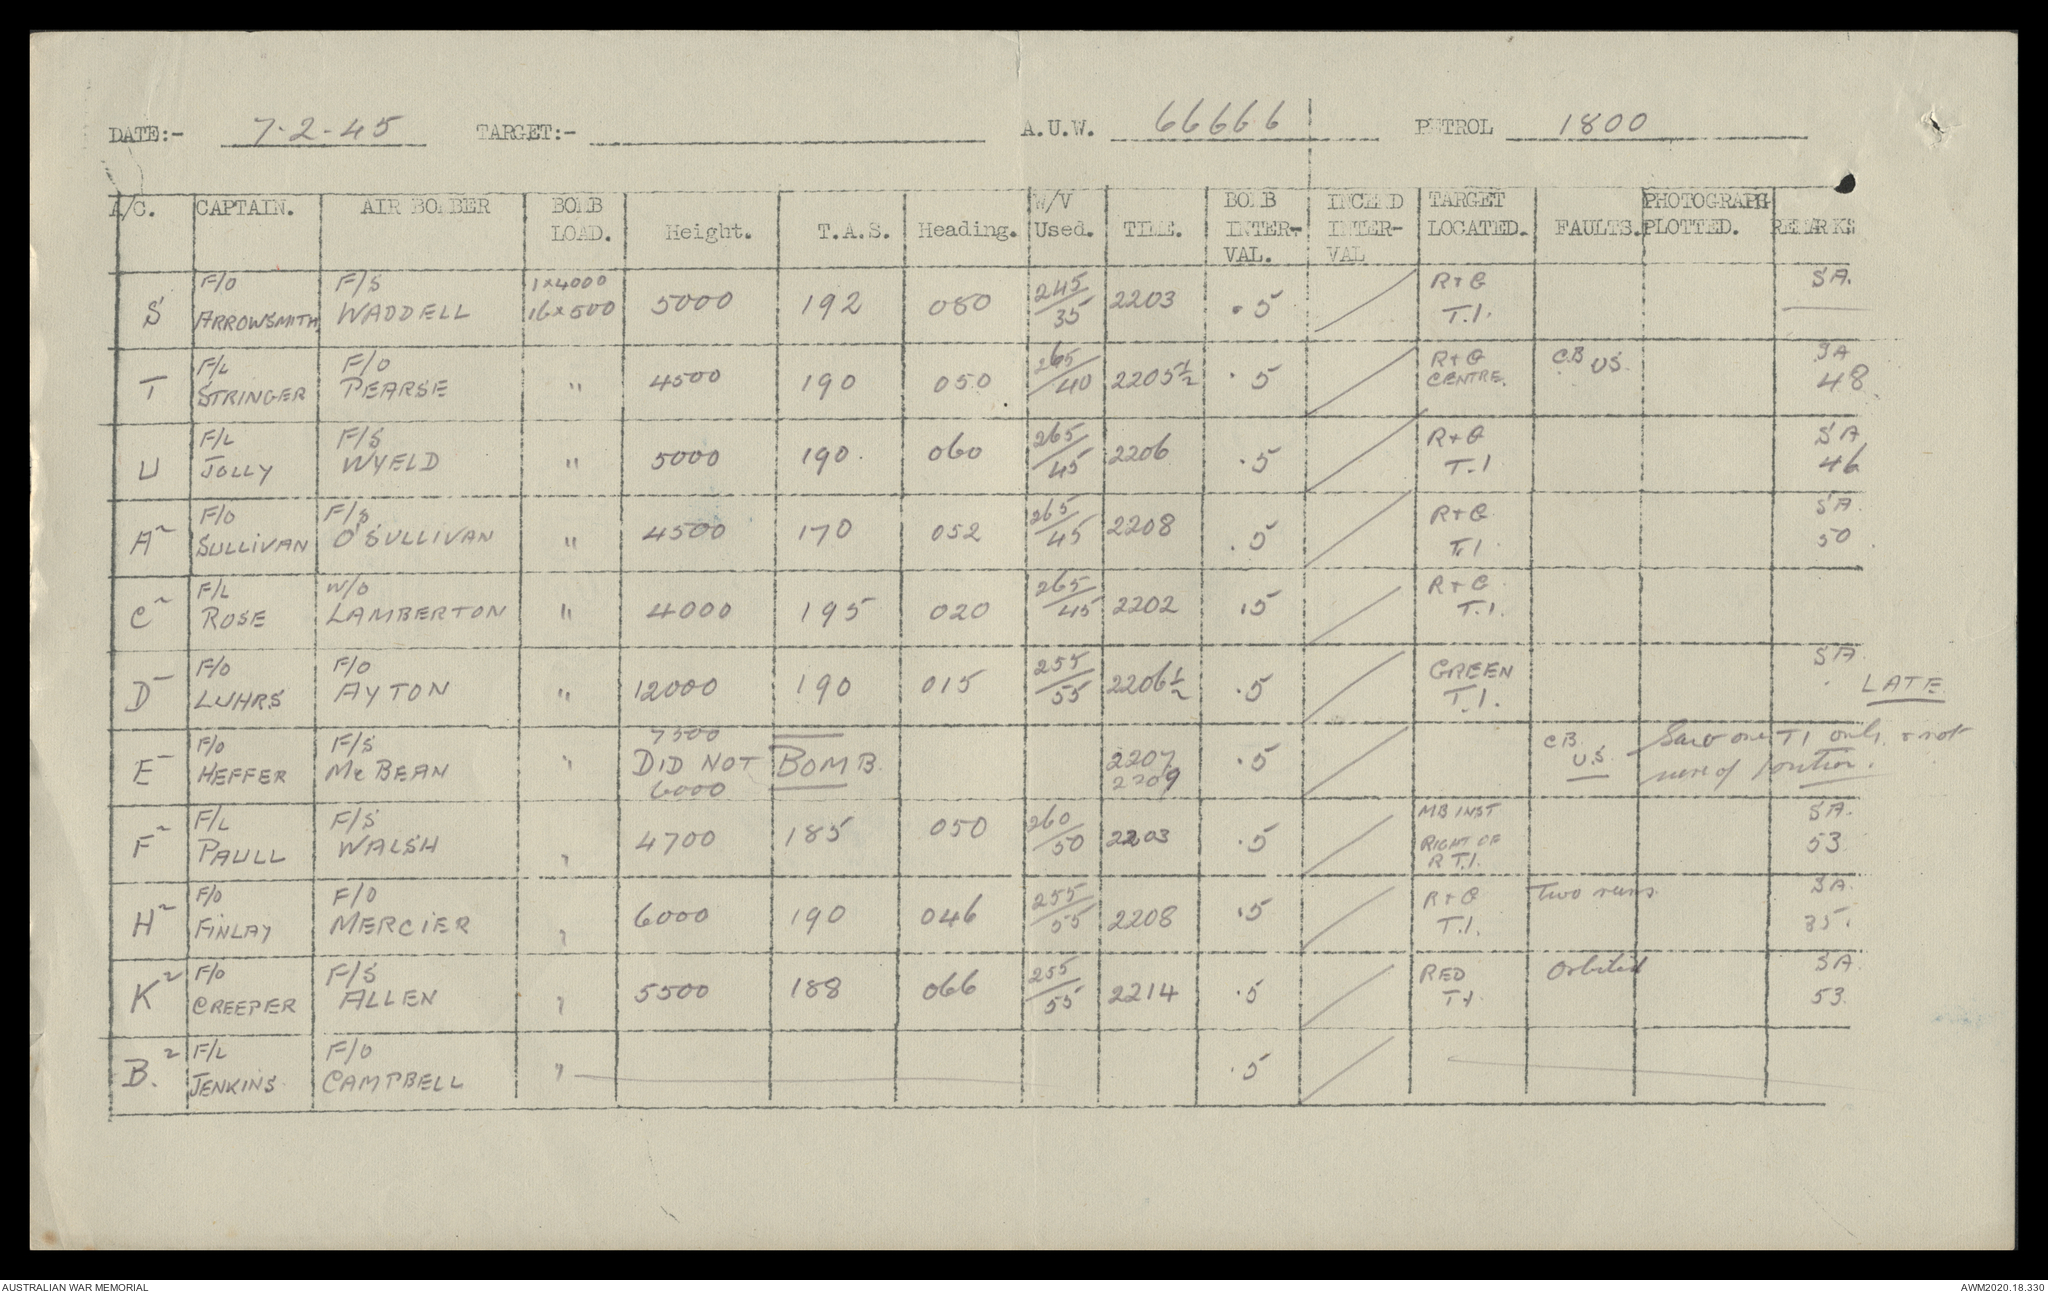 DATE:- 7-2-45 TARGET:- A.U.W. 66666 PETROL 1800
A/C. CAPTAIN. AIR BOMBER BOMB LOAD. Height. T.A.S. Heading. W/V Used. TIME. BOMB INTER-VAL. INCEND INTER-VAL TARGET LOCATED. FAULTS. PHOTOGRAPH PLOTTED. REMARKS
S F/O ARROWSMITH. F/S WADDELL 1x4000 16x500 5000 192 080 245/35 2203 .5 R+G T.I. SA.
T F/L STRINGER F/O PEARSE " 4500 190 050 265/40 2205½ .5 R+G CENTRE. C.B US. SA 48
U F/L JOLLY F/S WYELD " 5000 190. 060 265/45 2206 .5 R+G T.I SA 46
A² F/O SULLIVAN F/S O'SULLIVAN " 4500 170 052 265/45 2208 .5 R+G T.I. SA. 50
C² F/L ROSE W/O LAMBERTON " 4000 195 020 265/45 2202 .5 R+G T.I.
D² F/O LUHRS F/O AYTON " 12000 190 015 255/55 2206½ .5 GREEN T.I. SA. LATE
E² F/O HEFFER F/S McBEAN " 7500 DID NOT BOMB. 6000 2207 2209 .5 C.B. U.S. Saw one TI only & not sure of position.
F² F/L PAULL F/S WALSH " 4700 185 050 260/50 2203 .5 MB INST RIGHT OF R T.I. SA. 53
H² F/O FINLAY F/O MERCIER " 6000 190 046 255/55 2208 .5 R+G T.I. Two runs. SA. 35.
K² F/O CREEPER F/S ALLEN " 5500 188 066 255/55 2214 .5 RED T.I Orbited SA. 53.
B.² F/L JENKINS. F/O CAMPBELL " .5
AUSTRALIAN WAR MEMORIAL AWM2020.18.330